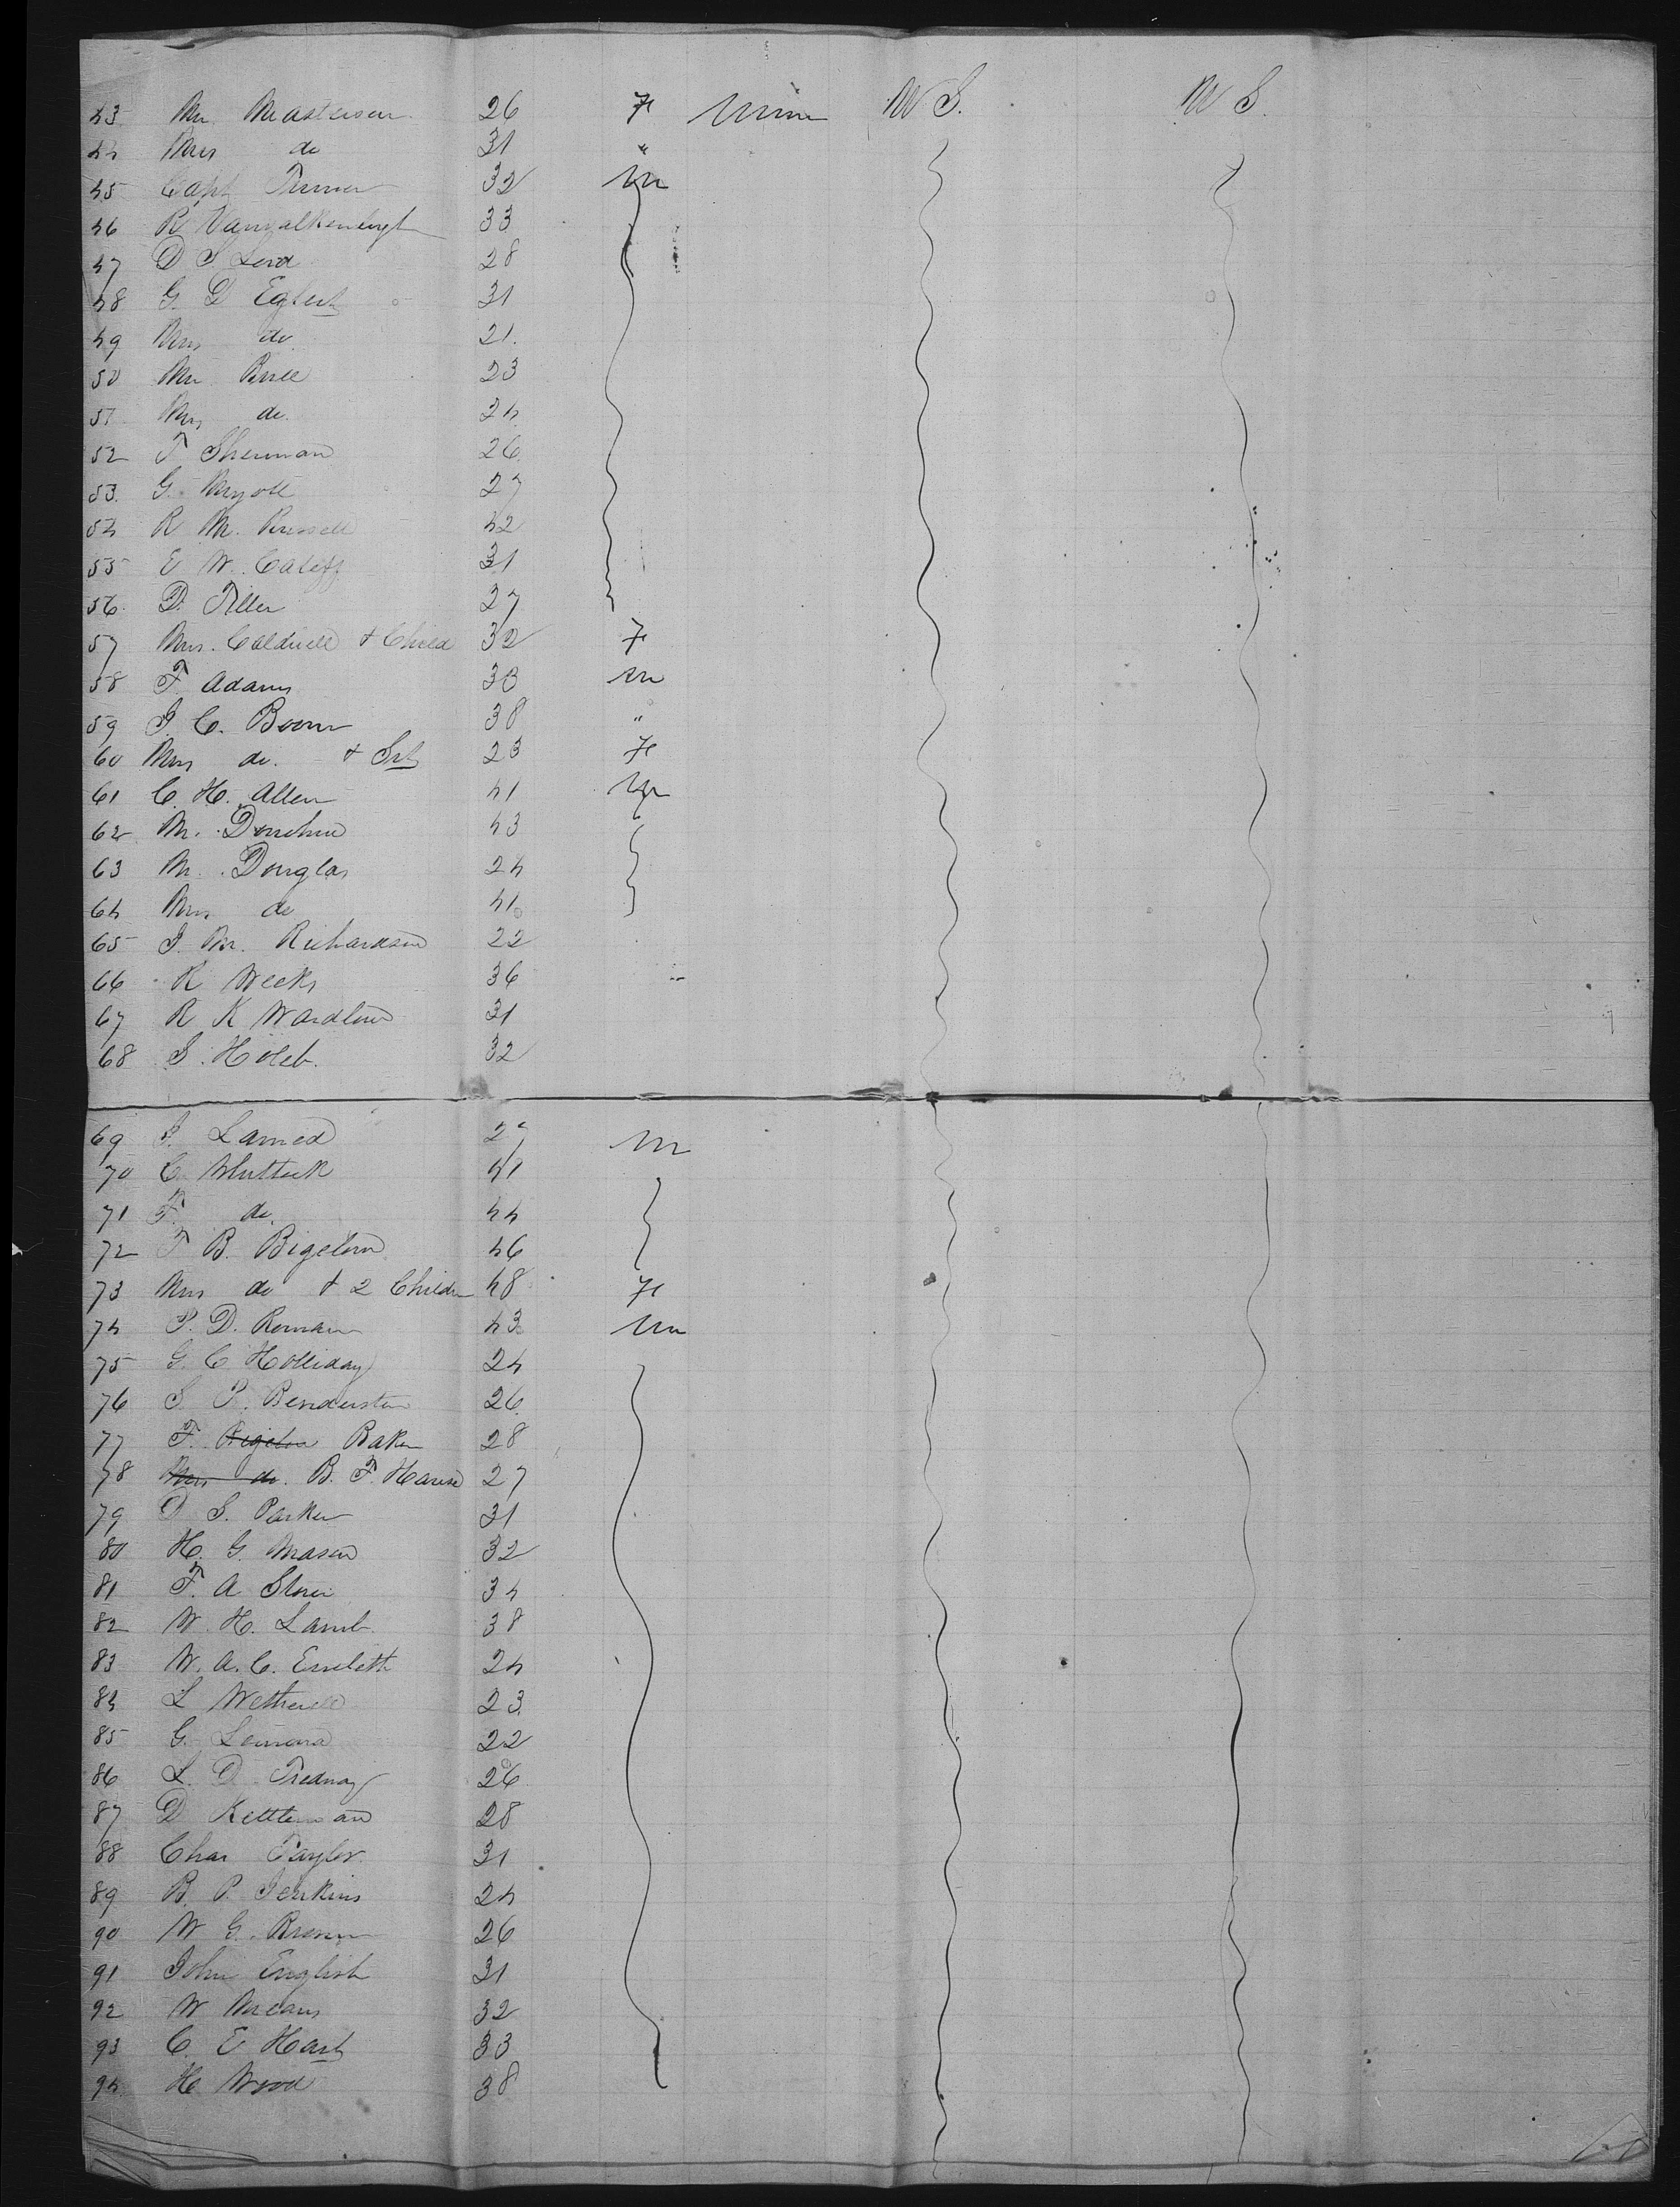 43 Mr Masterson 26 F None U S. U S.
44 Mrs do 31 "
45 Capt Turner 32 M
46 R Vanvalkenburgh 33
47 D S Lord 28
48 G. D Egbert 31
49 Mrs do 21.
50 Mr 23
51 Mrs do. 24
52 T Sherman 26
53. G. Myott 27
54 R M. Russell 42
55 E W. 31
56. D. Tiller 27
57 Mrs. Caldwell & Child 32 F
58 F Adams 33 M
59 J. C. Boom 38 "
60 Mrs do. & 23 F
61 C. H. Allen 41 M
62 M. Donohue 43
63 M. Douglas 24
64 Mrs do 41
65 J. M. Richardson 22
66 R Weeks 36
67 R K Wardlow 31
68 S. Holcb. 32
69 J. Larned 27 M
70 C Whittock 41
71 F. do. 44
72 F B. Bigelow 46
73 Mrs do & 2 Children 48 F
74 P. D. Roman 43 M
75 G. C Holliday 24
76 S P. Benderston 26
77 F. Bigelow Baker 28
78 Mrs do. B. F. 27
79 D S. Parker 31
80 H. G. Mason 32
81 F. A Stone 34
82 W. H. Lamb. 38
83 W. A. C. 24
84 L Wetherell 23
85 G. 22
86 L. D Treadway 26
87 D Kettleman 28
88 Chas Taylor 31
89 B. P. Jenkins 24
90 W G. Brown 26
91 John English 31
92 W Means 32
93 C. E Hart 33
94 H Wood 38